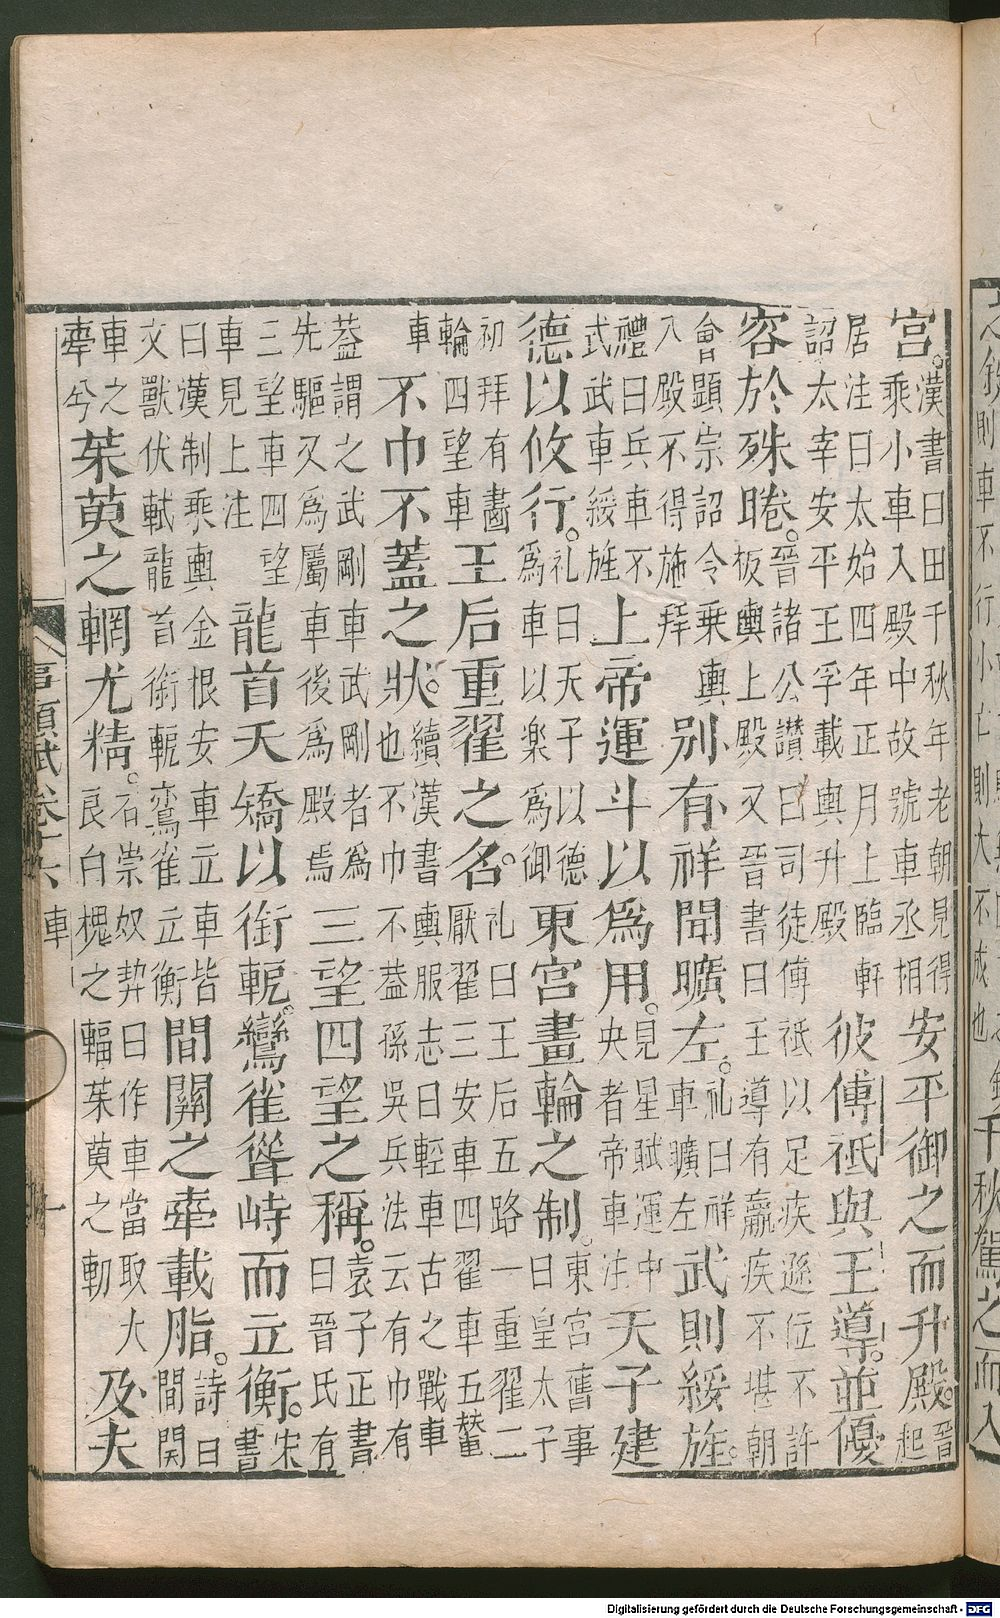 宮。漢書曰田千秋年老朝見得乘小車入殿中故號車丞相安平御之而升殿。晉起
居注曰太始四年正月上臨軒詔太宰安平王孚載輿升殿彼傅祗與王導。並優
容於殊睠。晉諸公讚曰司徒傅祗以足疾遜位不許板輿上殿又晉書曰王導有羸疾不堪朝
會顯宗詔令乗輿入殿不得施拜別有祥聞曠左。礼曰祥車曠左武則綏旌。
禮曰兵車不式武車綏旌上帝運斗以爲用。見星賦運中央者帝車注天子建
德以攸行。礼曰天子以德爲車以楽爲御東宮畫輪之制。東宮舊事曰皇太子
初拜有畵輪四望車王后重翟之名。礼曰王后五路一重翟二厭翟三安車四翟車五輦
車不巾不蓋之狀。續漢書輿服志曰輕車古之戰車也不巾不葢孫吳兵法云有巾有
葢謂之武剛車武剛者爲先驅又爲屬車後爲殿焉三望四望之稱。袁子正書曰晉氏有
三望車四望車見上注龍首夭矯以銜軛。鸞雀聳峙而立衡。宋書
曰漢制乘輿金根安車立車皆文獸伏軾龍首銜軛鸞雀立衡間關之舝載脂。詩曰間関
車之舝兮茱萸之輞尤精。石崇奴券曰作車當取大良白槐之輻茱萸之輞及夫
事類賦卷十六 車
Digitalisierung gefördert durch die Deutsche Forschungsgemeinschaft - DFG